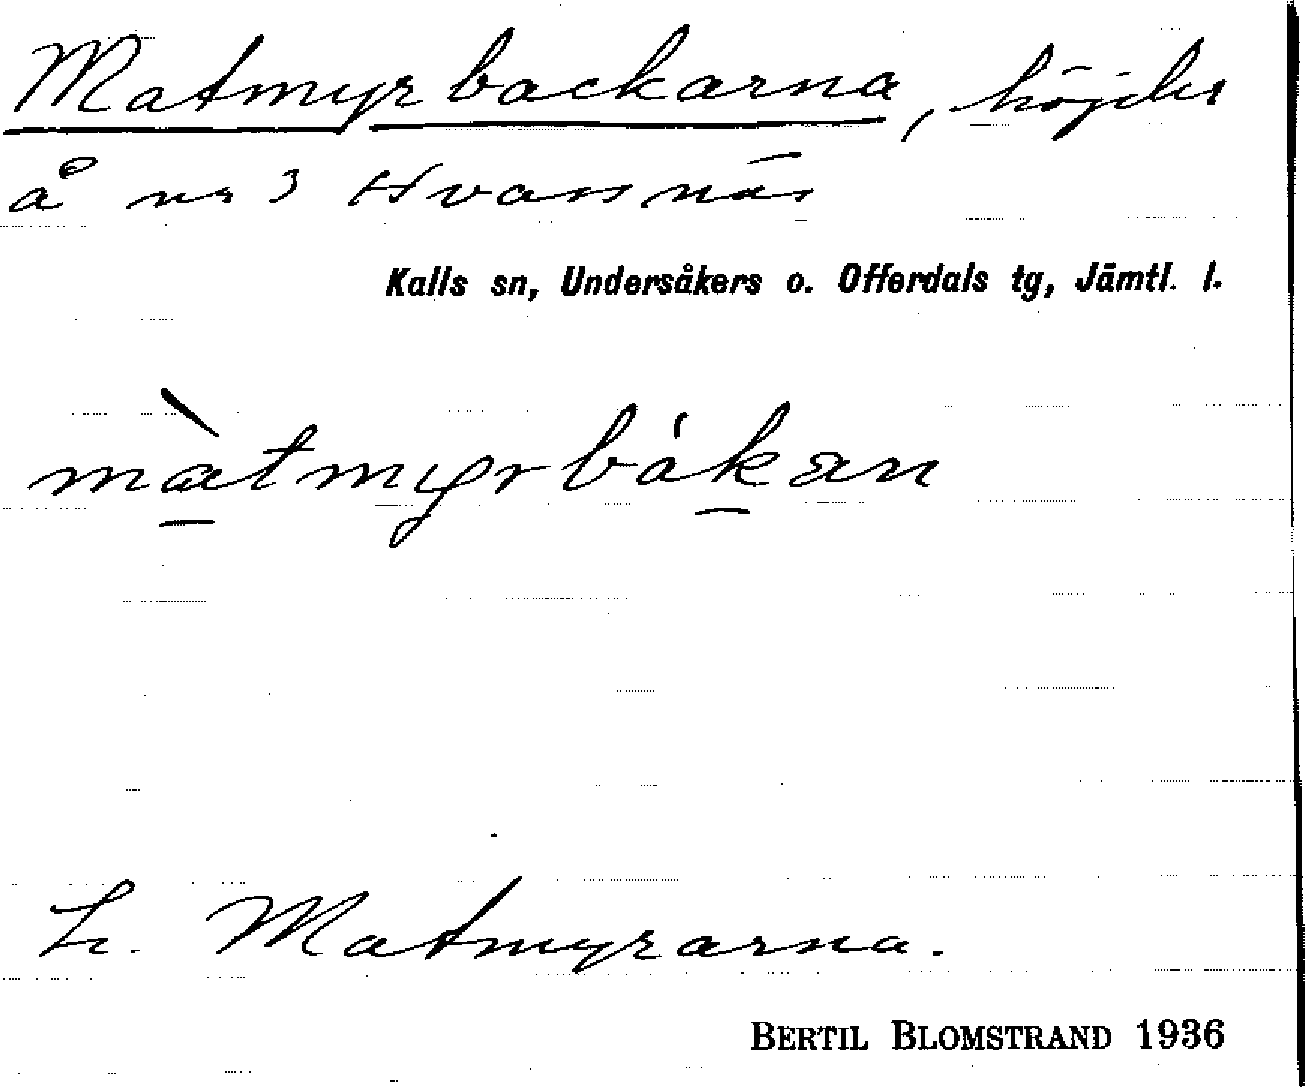 Matmyrbackarna, höjder
å nr 3 Hvassnäs
Kalls sn, Undersåkers o. Offerdals tg, Jämtl. l.
màtmyrbákan
Matmyrarna.
BERTIL BLOMSTRAND 1936